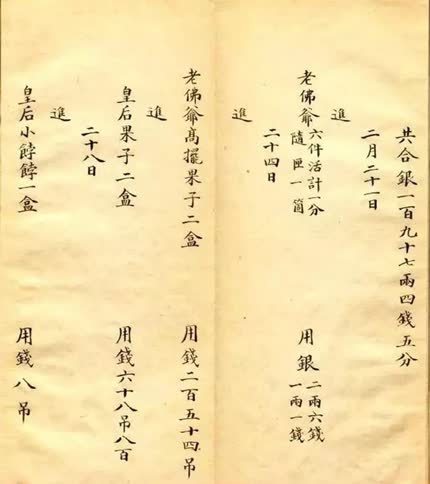 共合銀一百九十七兩四錢五分
二月二十一日
進
老佛爺六件活計一分 用銀二兩六錢
隨匣一箇 一兩一錢
二十四日
進
老佛爺高擺果子二盒 用錢二百五十四吊
進
皇后果子二盒 用錢六十八吊八百
二十八日
進
皇后小餑餑一盒 用錢八吊